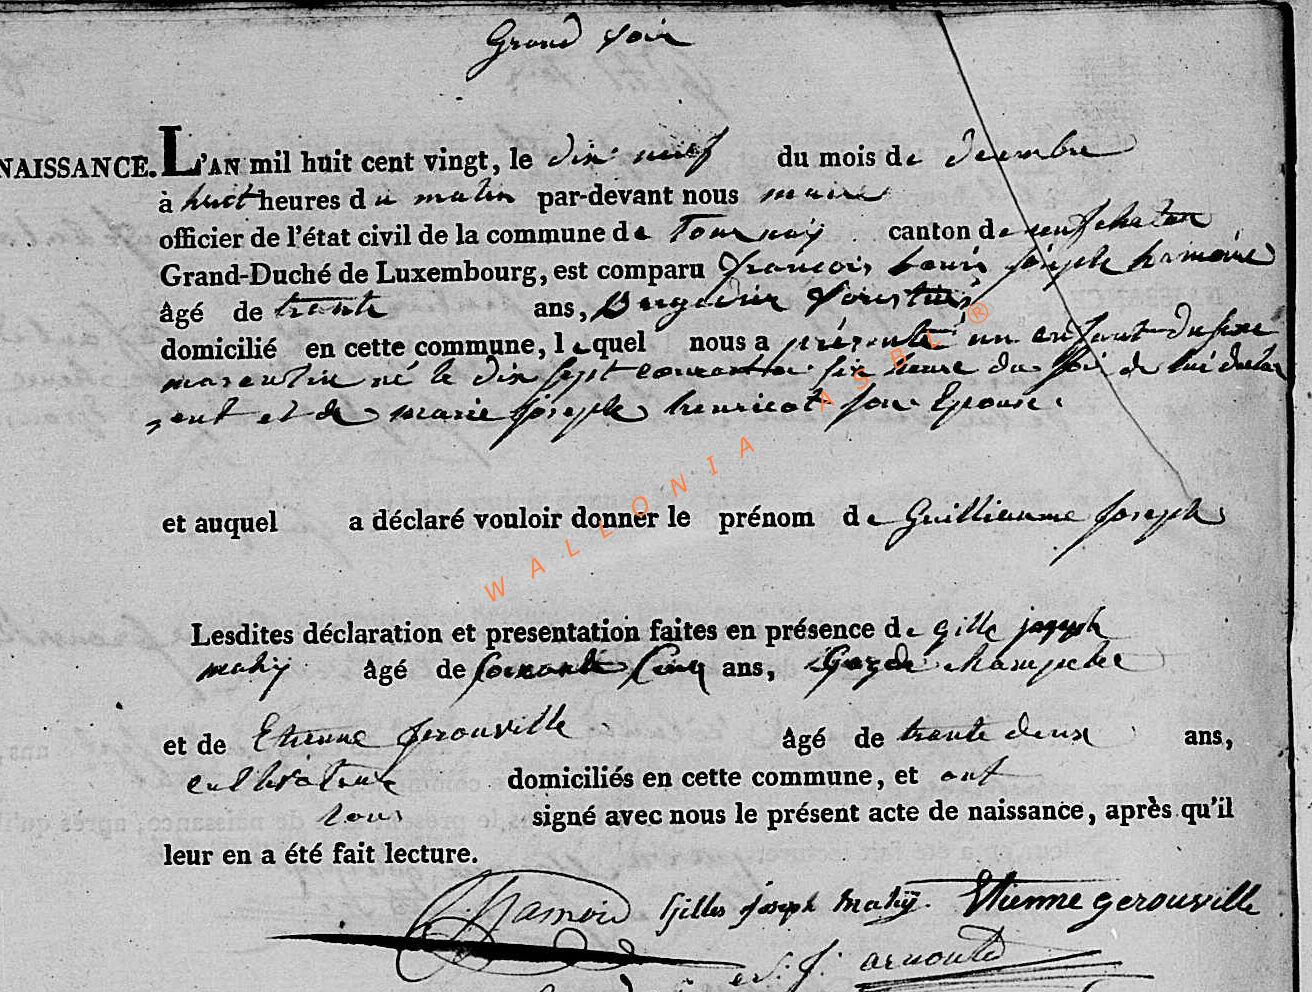 Grand voir
NAISSANCE. L'AN mil huit cent vingt, le dix neuf du mois de decembre
à huit heures du matin par-devant nous maire
officier de l'état civil de la commune de Tournay canton de neufchateau
Grand-Duché de Luxembourg, est comparu françois Louis joseph
âgé de trente ans, Brigadier forestier
domicilié en cette commune, lequel nous a présenté un enfant du sexe
masculin né le dix sept courant a six heure du soir de lui declar
ant et de marie joseph henricot son Epouse.
et auquel a déclaré vouloir donner le prénom de Guilliaume joseph
Lesdites déclaration et presentation faites en présence de gille joseph
mahÿ âgé de soixante Cinq ans, Garde champetre
et de Etienne gerouville âgé de trente deux ans,
cultivateur domiciliés en cette commune, et ont
tous signé avec nous le présent acte de naissance, après qu'il
leur en a été fait lecture.
Gilles joseph mahÿ. Etienne gerouville
j. arnould
WALLONIA ASBL ®